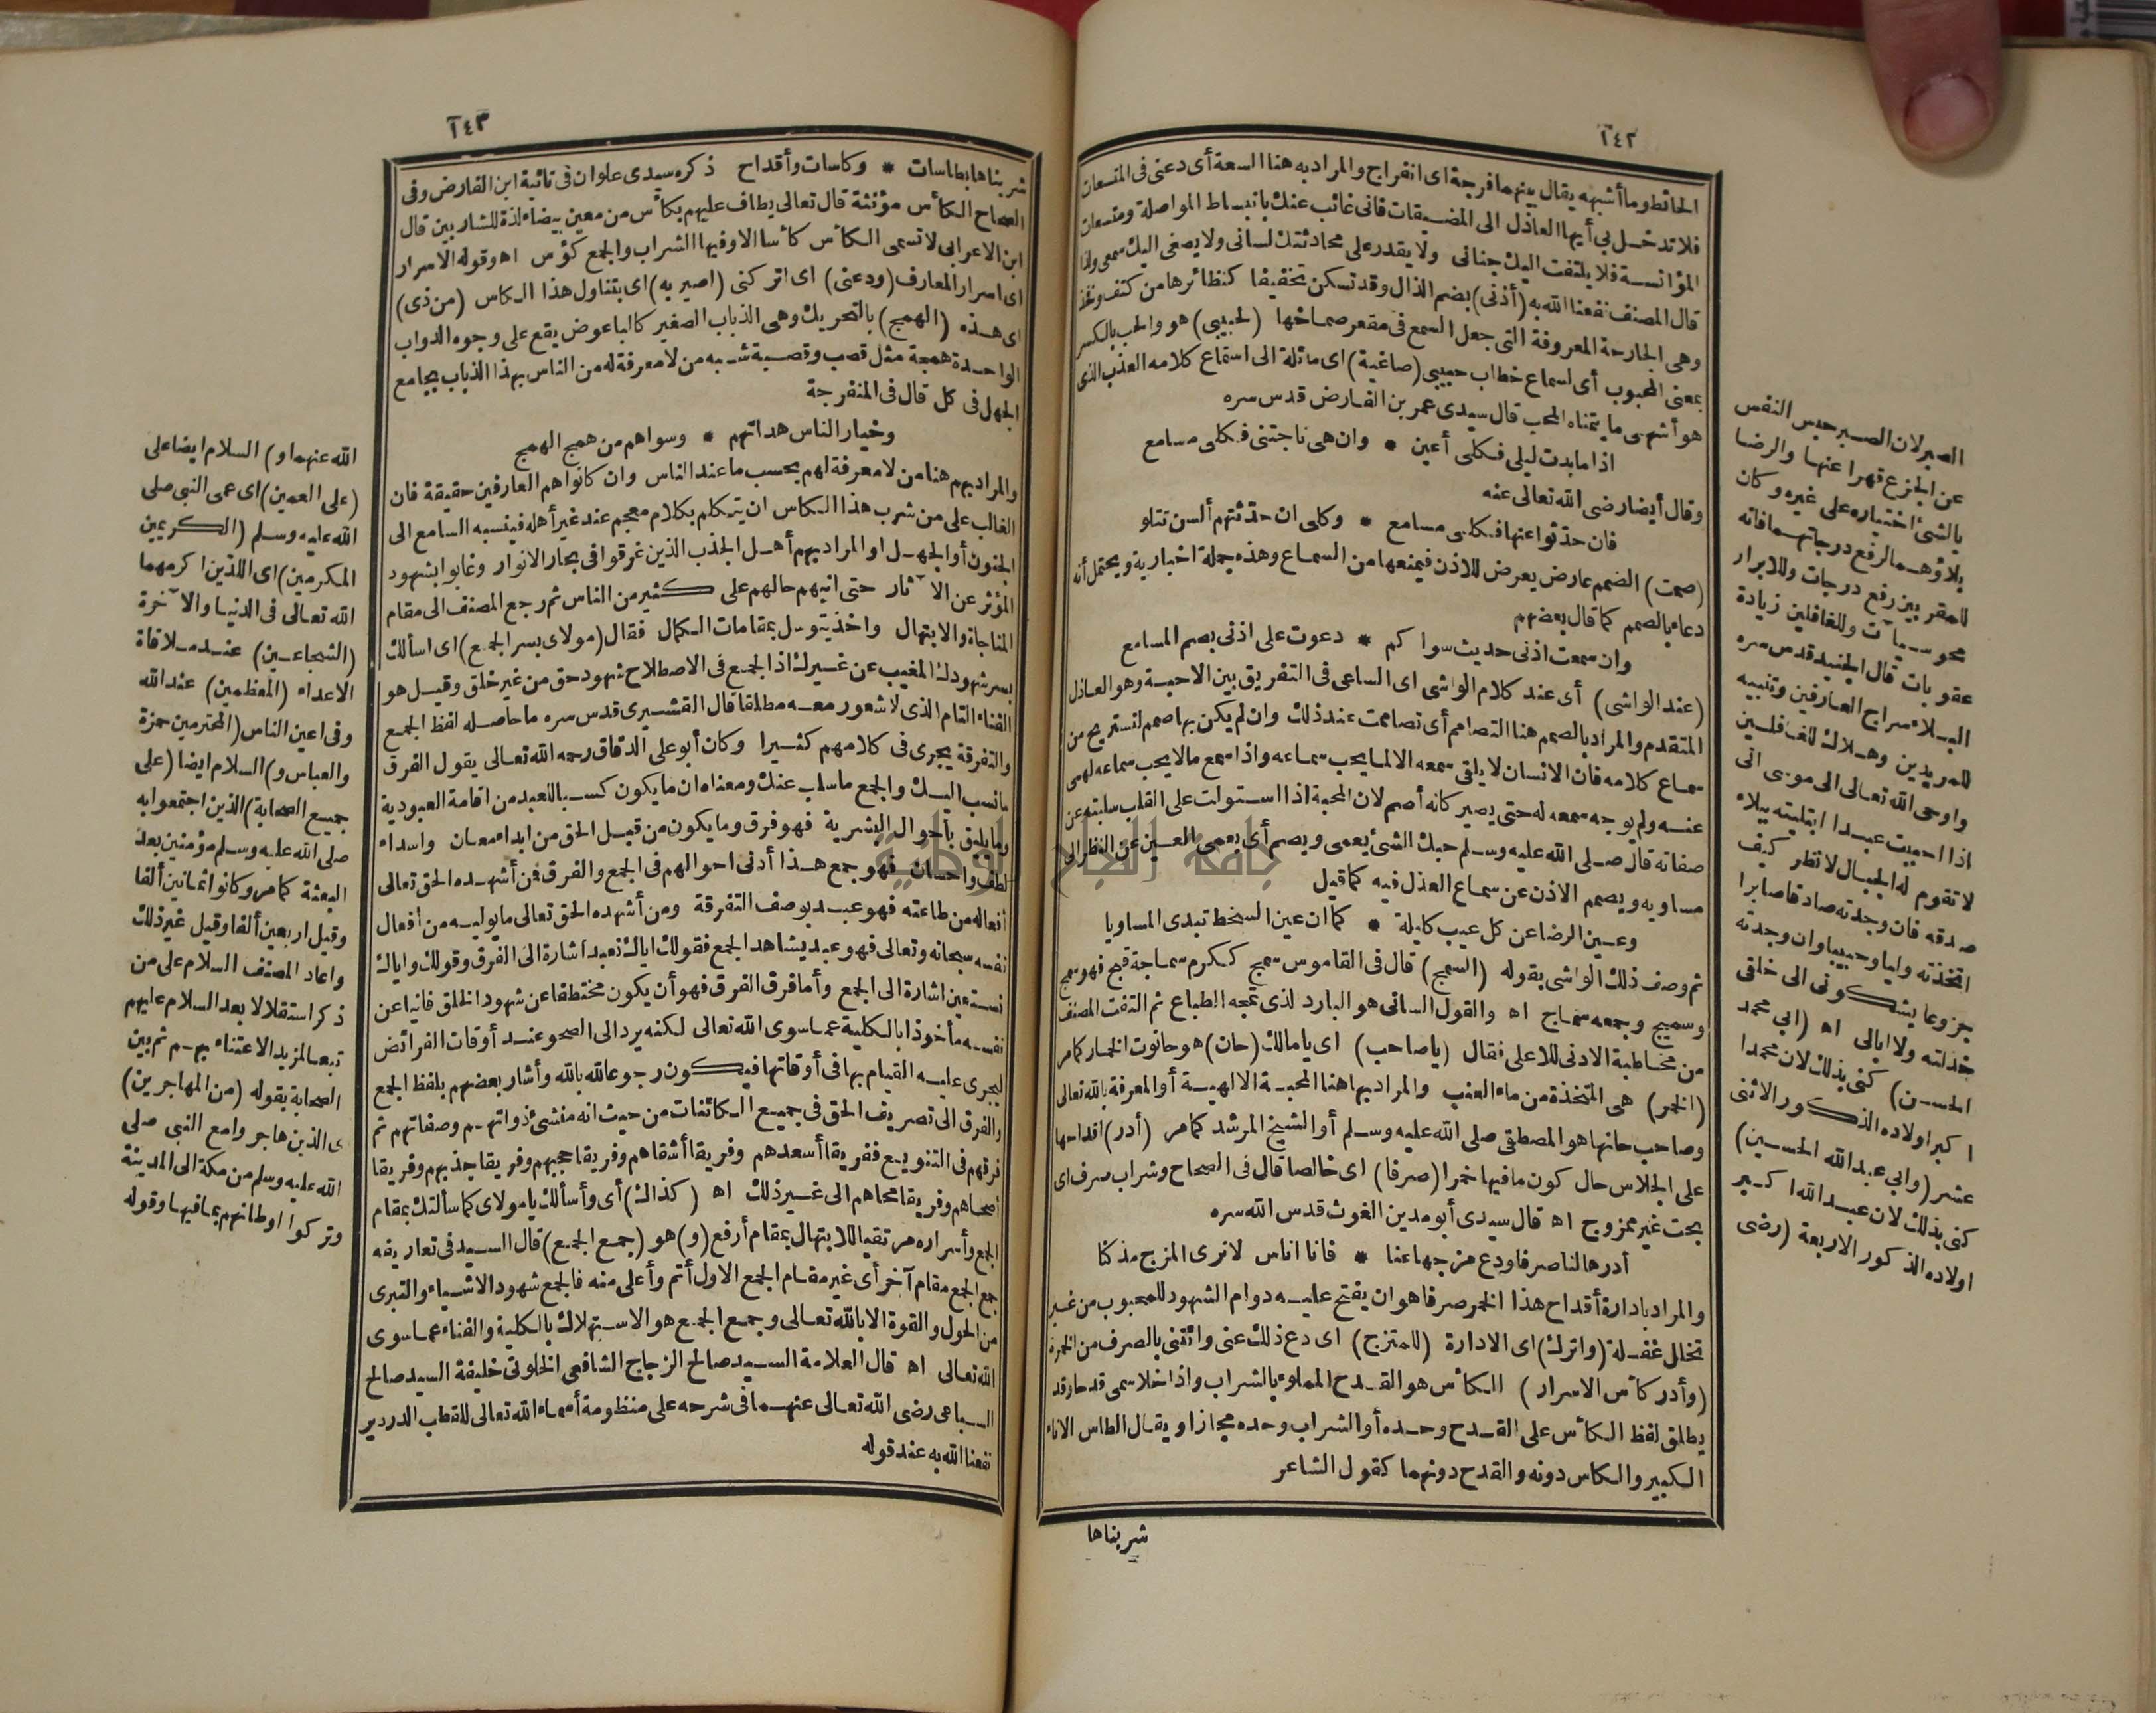 ١٤٢
الحائط وما أشبهه يقال بينهما فرجة اى انفراج والمراد به هنا السعة أى دعنى فى المتسعات
فلا تدخل بى أيها العاذل الى المضيقات فانى غائب عنك بانبساط المواصلة ومتسعات
المؤانسة فلا يلتفت اليك جنانى ولا يقدر على محادثتك لسانى ولا يصغى اليك سمعى ولذا
قال المصنف نفعنا الله به (أذنى) بضم الذال وقد تسكن تخفيفا كنظائرها من كتف وفخذ
وهى الجارحة المعروفة التى جعل السمع فى مقعر صماخها (لحبيبى) هو والحب بالكسر
بمعنى المحبوب أى لسماع خطاب حبيبى (صاغية) اى مائلة الى استماع كلامه العذب الذى
هو أشهى ما يتمناه المحب قال سيدى عمر بن الفارض قدس سره
اذا ما بدت ليلى فكلى أعين * وان هى ناجتنى فكلى مسامع
وقال أيضا رضى الله تعالى عنه
فان حدثوا عنها فكلى مسامع * وكلى ان حدثتهم ألسن تتلو
(صمت) الصمم عارض يعرض للاذن فيمنعها من السماع وهذه جملة اخبارية ويحتمل أنه
دعاء بالصمم كما قال بعضهم
وان سمعت اذنى حديث سواكم * دعوت على اذنى بصم المسامع
(عند الواشى) أى عند كلام الواشى اى الساعى فى التفريق بين الاحبة وهو العاذل
المتقدم والمراد بالصمم هنا التصامم أى تصاممت عند ذلك وان لم يكن بها صمم لتستريح من
سماع كلامه فان الانسان لا يلقى سمعه الا لما يحب سماعه واذا سمع ما لا يحب سماعه لهى
عنه ولم يوجه سمعه له حتى يصير كانه أصم لان المحبة اذا استولت على القلب سلبته عن
صفاته قال صلى الله عليه وسلم حبك الشئ يعمى ويصم أى يعمى العين عن النظر الى
مساويه ويصمم الاذن عن سماع العذل فيه كما قيل
وعين الرضا عن كل عيب كليلة * كما ان عين السخط تبدى المساويا
ثم وصف ذلك الواشى بقوله (السمج) قال فى القاموس سمج ككرم سماجة قبح فهو سمج
وسميج وجمعه سماج اه والقول السانى هو البارد لذى تمجه الطباع ثم التفت المصنف
من مخاطبة الادنى للاعلى فقال (يا صاحب) اى يا مالك (حان) هو حانوت الخمار كما مر
(الخمر) هى المتخذة من ماء العنب والمراد بها هنا المحبة الالهية أو المعرفة بالله تعالى
وصاحب حانها هو المصطفى صلى الله عليه وسلم أو الشيخ المرشد كما مر (أدر) اقداحها
على الجلاس حال كون ما فيها خمرا (صرفا) اى خالصا قال فى الصحاح وشراب صرف اى
بحت غير ممزوج اه قال سيدى أبو مدين الغوث قدس الله سره
أدرها لنا صرفا ودع مزجها عنا * فانا اناس لا نرى المزج مذ كنا
والمراد بادارة أقداح هذا الخمر صرفا هو ان يفتح عليه دوام الشهود للمحبوب من غير
تخلل غفلة (واترك) اى الادارة (للمتزج) اى دع ذلك عنى وائتنى بالصرف من الخمرة
(وأدر كأس الاسرار) الكأس هو القدح المملوء بالشراب واذا خلا سمى قدحا وقد
يطلق لفظ الكأس على القدح وحده أو الشراب وحده مجازا ويقال الطاس الاناء
الكبير والكاس دونه والقدح دونهما كقول الشاعر
شربناها
الصبر لان الصبر حبس النفس
عن الجزع قهرا عنها والرضا
بالشئ اختياره على غيره وكان
بلاؤهما لرفع درجاتهما فانه
للمقربين رفع درجات وللابرار
محو سيآت وللغافلين زيادة
عقوبات قال الجنيد قدس سره
البلاء سراج العارفين وتنبيه
للمريدين وهلاك للغافلين
واوحى الله تعالى الى موسى انى
اذا احببت عبدا ابتليته ببلاء
لا تقوم له الجبال لانظر كيف
صدقه فان وجدته صادقا صابرا
اتخذته وليا وحبيبا وان وجدته
جزوعا يشكونى الى خلقى
خذلته ولا ابالى اه (ابى محمد
الحسن) كنى بذلك لان محمدا
اكبر اولاده الذكور الاثنى
عشر (وابى عبد الله الحسين)
كنى بذلك لان عبد الله اكبر
اولاده الذكور الاربعة (رضى
١٤٣
شربناها بطاسات * وكاسات وأقداح ذكره سيدى علوان فى تائية ابن الفارض وفى
الصحاح الكأس مؤنثة قال تعالى يطاف عليهم بكأس من معين بيضاء لذة للشاربين قال
ابن الاعرابى لا تسمى الكأس كأسا الا وفيها الشراب والجمع كؤس اه وقوله الاسرار
اى اسرار المعارف (ودعنى) اى اتركنى (اصير به) اى بتناول هذا الكاس (من ذى)
اى هذه (الهمج) بالتحريك وهى الذباب الصغير كالباعوض يقع على وجوه الدواب
الواحدة همجة مثل قصب وقصبة شبه من لا معرفة له من الناس بهذا الذباب بجامع
الجهل فى كل قال فى المنفرجة
وخيار الناس هداتهم * وسواهم من همج الهمج
والمراد بهم هنا من لا معرفة لهم بحسب ما عند الناس وان كانوا هم العارفين حقيقة فان
الغالب على من شرب هذا الكاس ان يتكلم بكلام معجم عند غير أهله فينسبه السامع الى
الجنون أو الجهل او المراد بهم أهل الجذب الذين غرقوا فى بحار الانوار وغابوا بشهود
المؤثر عن الآثار حتى انبهم حالهم على كثير من الناس ثم رجع المصنف الى مقام
المناجاة والابتهال واخذ يتوسل بمقامات الكمال فقال (مولاى بسر الجمع) اى اسألك
بسر شهودك المغيب عن غيرك اذ الجمع فى الاصطلاح شهود حق من غير خلق وقيل هو
الفناء التام الذى لا شعور معه مطلقا قال القشيرى قدس سره ما حاصله لفظ الجمع
والتفرقة يجرى فى كلامهم كثيرا وكان أبو على الدقاق رحمه الله تعالى يقول الفرق
ما نسب اليك والجمع ما سلب عنك ومعناه ان ما يكون كسبا للعبد من اقامة العبودية
وما يليق بأحوال البشرية فهو فرق وما يكون من قبل الحق من ابداء معان واسداء
لطف واحسان فهو جمع هذا أدنى احوالهم فى الجمع والفرق فمن أشهده الحق تعالى
افعاله من طاعته فهو عبد بوصف التفرقة ومن أشهده الحق تعالى ما يوليه من افعال
نفسه سبحانه وتعالى فهو عبد يشاهد الجمع فقولك اياك نعبد اشارة الى الفرق وقولك واياك
نستعين اشارة الى الجمع وأما فرق الفرق فهو أن يكون مختطفا عن شهود الخلق فانيا عن
نفسه مأخوذا بالكلية عما سوى الله تعالى لكنه يرد الى الصحو عند أوقات الفرائض
ليجرى عليه القيام بها فى أوقاتها فيكون رجوعا لله بالله وأشار بعضهم بلفظ الجمع
والفرق الى تصريف الحق فى جميع الكائنات من حيث انه منشئ ذواتهم وصفاتهم ثم
فرقهم فى التنويع ففريقا أسعدهم وفريقا أشقاهم وفريقا حجبهم وفريقا جذبهم وفريقا
اصحاهم وفريقا محاهم الى غير ذلك اه (كذاك) أى وأسألك يا مولاى كما سألتك بمقام
الجمع وأسراره مرتقيا للابتهال بمقام أرفع (و) هو (جمع الجمع) قال السيد فى تعاريفه
جمع الجمع مقام آخر أى غير مقام الجمع الاول أتم وأعلى منه فالجمع شهود الاشياء والتبرى
من الحول والقوة الا بالله تعالى وجمع الجمع هو الاستهلاك بالكلية والفناء عما سوى
الله تعالى اه قال العلامة السيد صالح الزجاج الشافعى الخلوتى خليفة السيد صالح
السباعى رضى الله تعالى عنهما فى شرحه على منظومة أسماء الله تعالى للقطب الدردير
نفعنا الله به عند قوله
الله عنهما و) السلام ايضا على
(على العمين) اى عمى النبى صلى
الله عليه وسلم (الكريمين
المكرمين) اى اللذين اكرمهما
الله تعالى فى الدنيا والآخرة
(الشجاعين) عند ملاقاة
الاعداء (المعظمين) عند الله
وفى اعين الناس (المحترمين حمزة
والعباس و) السلام ايضا (على
جميع الصحابة) الذين اجتمعوا به
صلى الله عليه وسلم مؤمنين بعد
البعثة كما مر وكانوا ثمانين ألفا
وقيل اربعين ألفا وقيل غير ذلك
واعاد المصنف السلام على من
ذكر استقلالا بعد السلام عليهم
تبعا لمزيد الاعتناء بهم ثم بين
الصحابة بقوله (من المهاجرين)
ى الذين هاجروا مع النبى صلى
الله عليه وسلم من مكة الى المدينة
وتركوا اوطانهم بما فيها وقوله
جامعة النجاح الوطنية